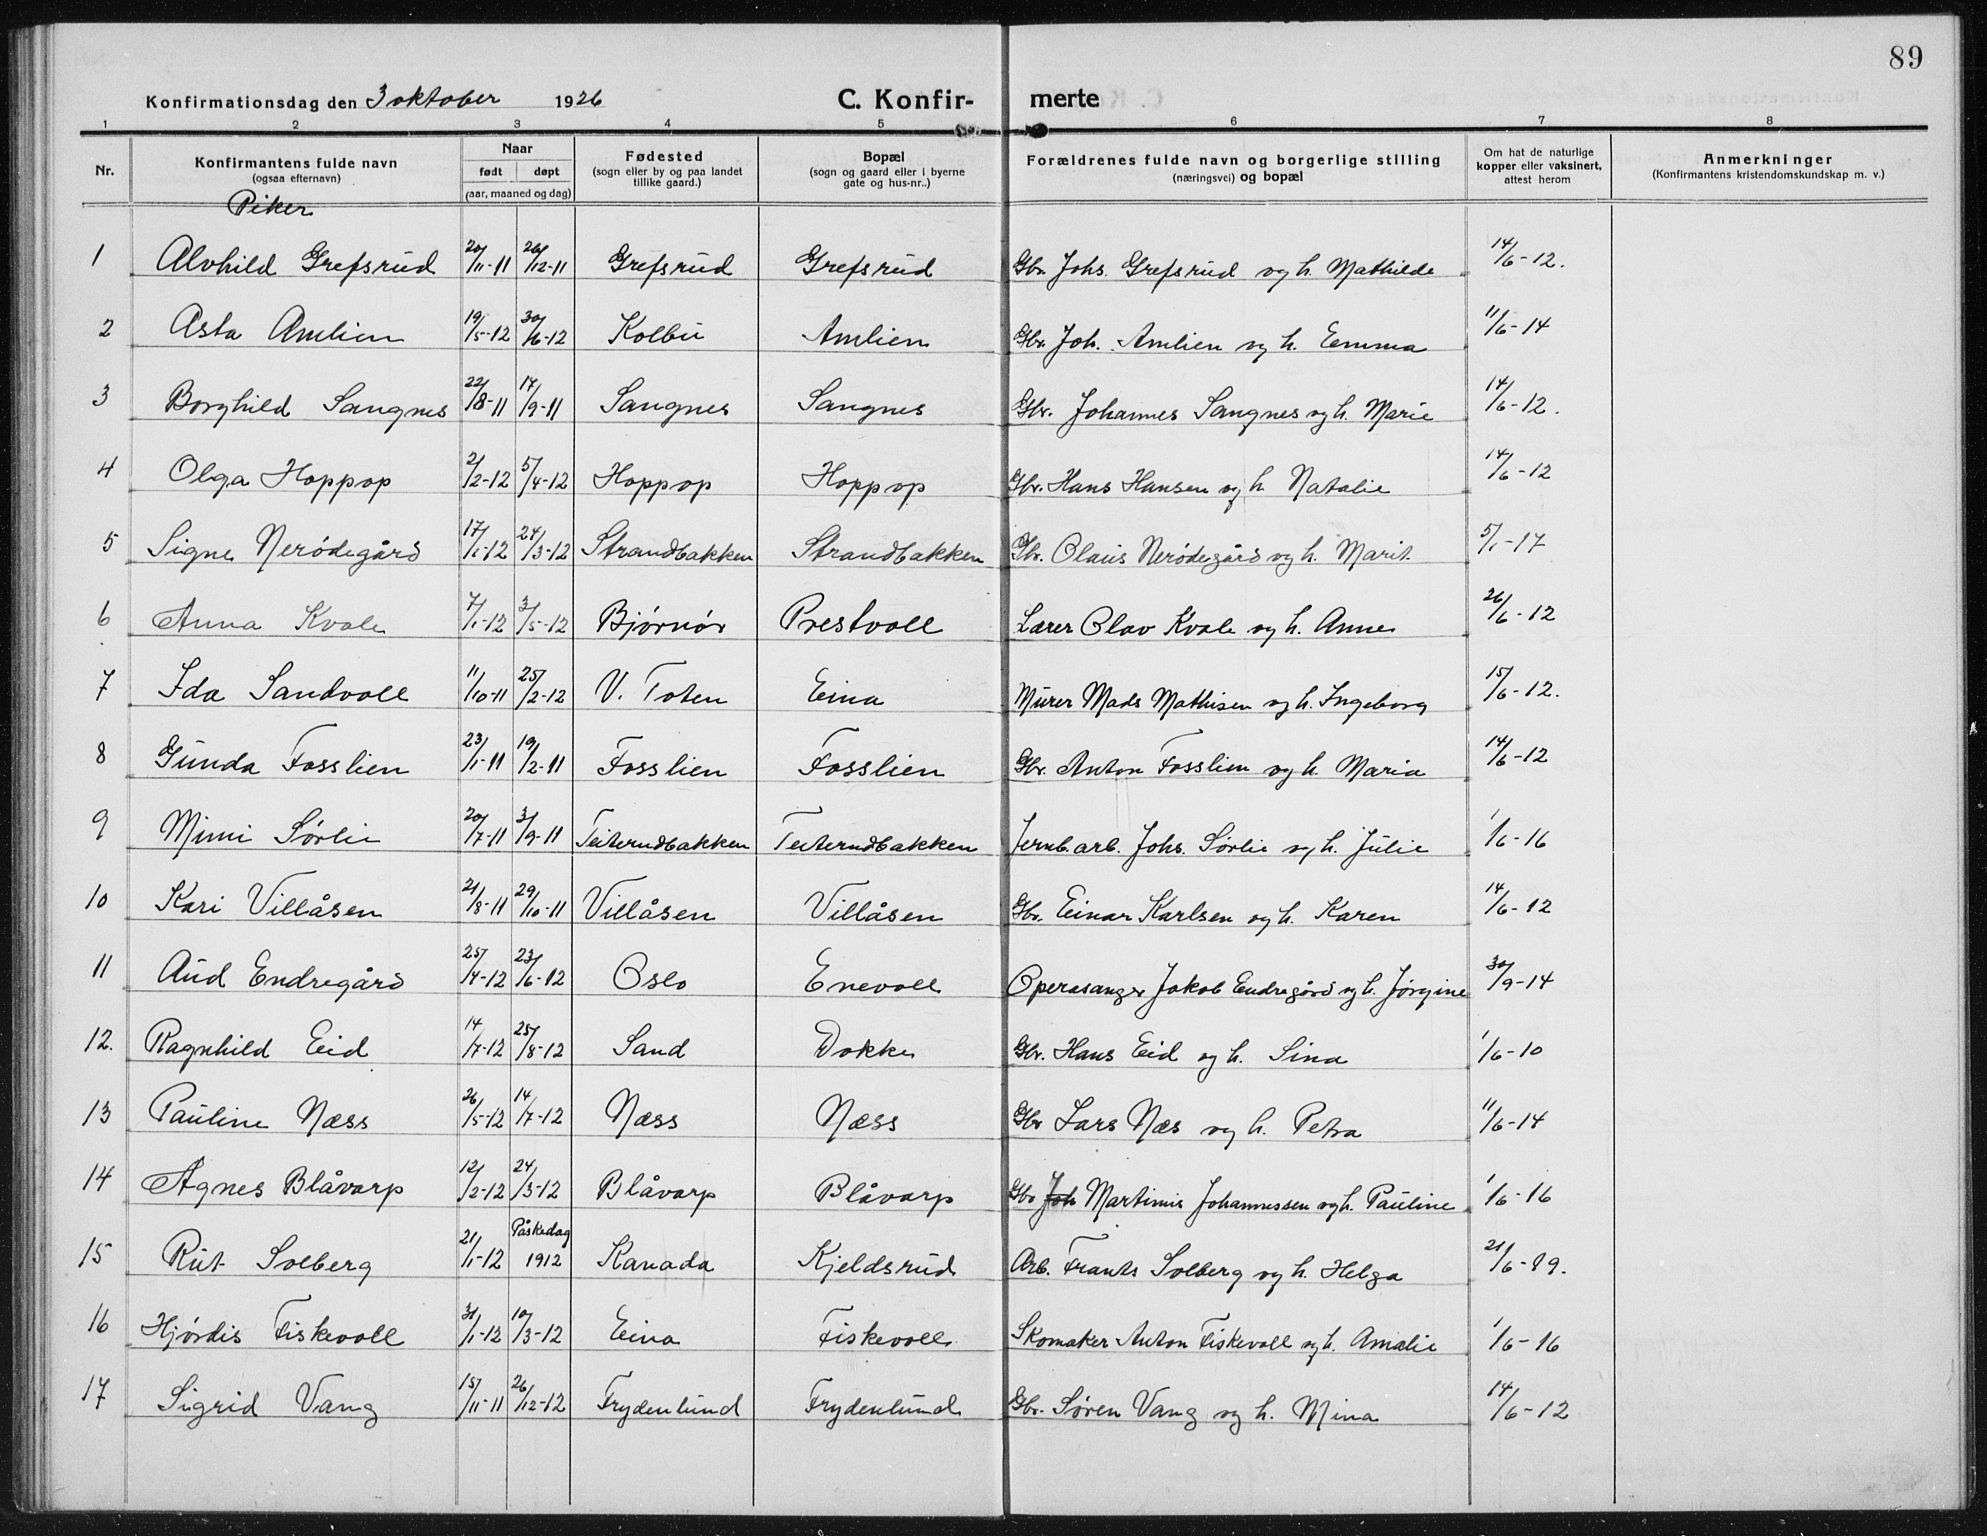 89
Konfirmationsdag den 3 oktober 1926 C. Konfir- merte
1 2 3 4 5 6 7 8
Nr. Konfirmantens fulde navn (ogsaa efternavn) Naar født døpt (aar, maaned og dag) Fødested (sogn eller by og paa landet tillike gaard.) Bopæl (sogn og gaard eller i byerne gate og hus-nr..) Forældrenes fulde navn og borgerlige stilling (næringsvei) og bopæl Om hat de naturlige kopper eller vaksinert, attest herom Anmerkninger (Konfirmantens kristendomskundskap m. v.)
Piker
1 Alvhild Grefsrud 20/11-11 26/12-11 Grefsrud Grefsrud Gbr. Johs. Grefsrud og h. Mathilde 14/6-12.
2 Asta Amlien 19/5-12 30/6-12 Kolbu Amlien Gbr. Joh. Amlien og h. Emma 11/6-14
3 Borghild Sangnes 22/8-11 17/9-11 Sangnes Sangnes Gbr. Johannes Sangnes og h. Marie 14/6-12.
4 Olga Hoppop 2/2-12 5/4-12 Hoppop Hoppop Gbr. Hans Hansen og h. Natalie 14/6-12
5 Signe Nerødegård 17/1-12 24/3-12 Strandbakken Strandbakken Gbr. Olaus Nerødegård og h. Marit 5/1-17
6 Anna Kvale 7/1-12 3/5-12 Bjørnør Prestvoll Lærer Olav Kvale og h. Anne 26/6-12
7 Ida Sandvoll 11/10-11 25/2-12 V. Toten Eina Murer Mads Mathisen og h. Ingeborg 15/6-12.
8 Gunda Fosslien 23/1-11 19/2-11 Fosslien Fosslien Gbr. Anton Fosslien og h. Maria 14/6-12
9 Mimi Sørlie 20/7-11 3/9-11 Teiterudbakken Teiterudbakken Jernb.arb. Johs. Sørlie og h. Julie 1/6-16
10 Kari Villåsen 21/8-11 29/10-11 Villåsen Villåsen Gbr. Einar Karlsen og h. Karen 14/6-12
11 Aud Endregård 25/4-12 23/6-12 Oslo Enevoll Operasanger Jakob Endregård og h. Jørgine 30/9-14
12. Ragnhild Eid 14/7-12 25/8-12 Sand Dokke Gbr. Hans Eid og h. Sina 1/6-10
13 Pauline Næss 26/5-12 14/7-12 Næss Næss Gbr Lars Næs og h. Petra 11/6-14
14 Agnes Blåvarp 12/2-12 24/3-12 Blåvarp Blåvarp Gbr Joh Martinus Johannessen og h. Pauline 1/6-16
15 Rut Solberg 21/1-12 Påskedag 1912 Kanada Kjeldsrud Arb. Frants Solberg og h. Helga 21/6-19.
16 Hjørdis Fiskevoll 31/1-12 10/3-12 Eina Fiskevoll Skomaker Anton Fiskevoll og h. Amalie 1/6-16
17 Sigrid Vang 15/11-11 26/12-12 Frydenlund Frydenlund Gbr. Søren Vang og h. Mina 14/6-12